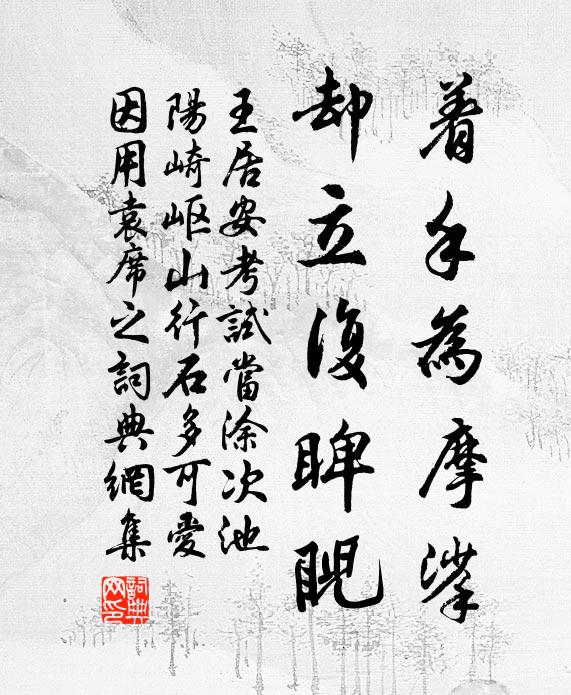 着手為摩挲
却立復睥睨
王居安考試當涂次池
陽崎岖山行石多可愛
因用袁席之詞典網集
詞典網印